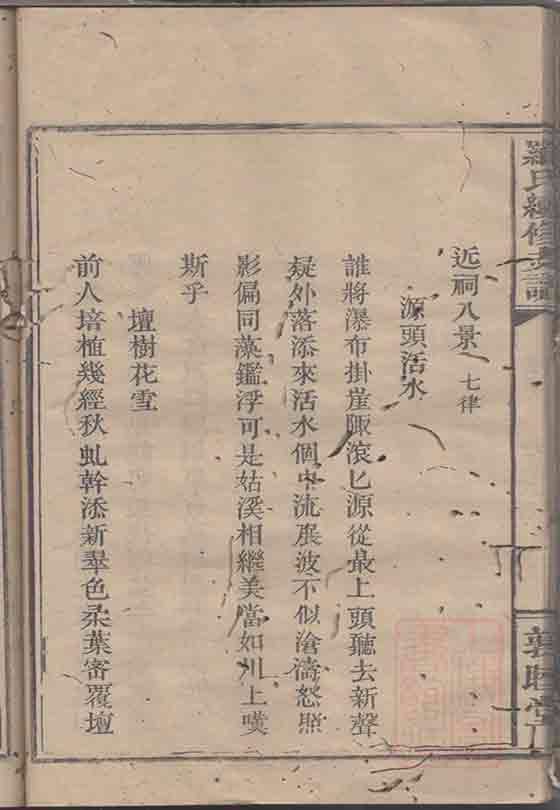 羅氏續修支譜
敦睦堂
近祠八景 七律
源頭活水
誰將瀑布掛崖陬滾匕源從最上頭聽去新聲
疑外落添來活水個中流展波不似滄濤怒照
影偏同藻鑑浮可是姑溪相繼美當如川上嘆
斯乎
壇樹花雪
前人培植幾經秋虬幹添新翠色柔葉密覆壇